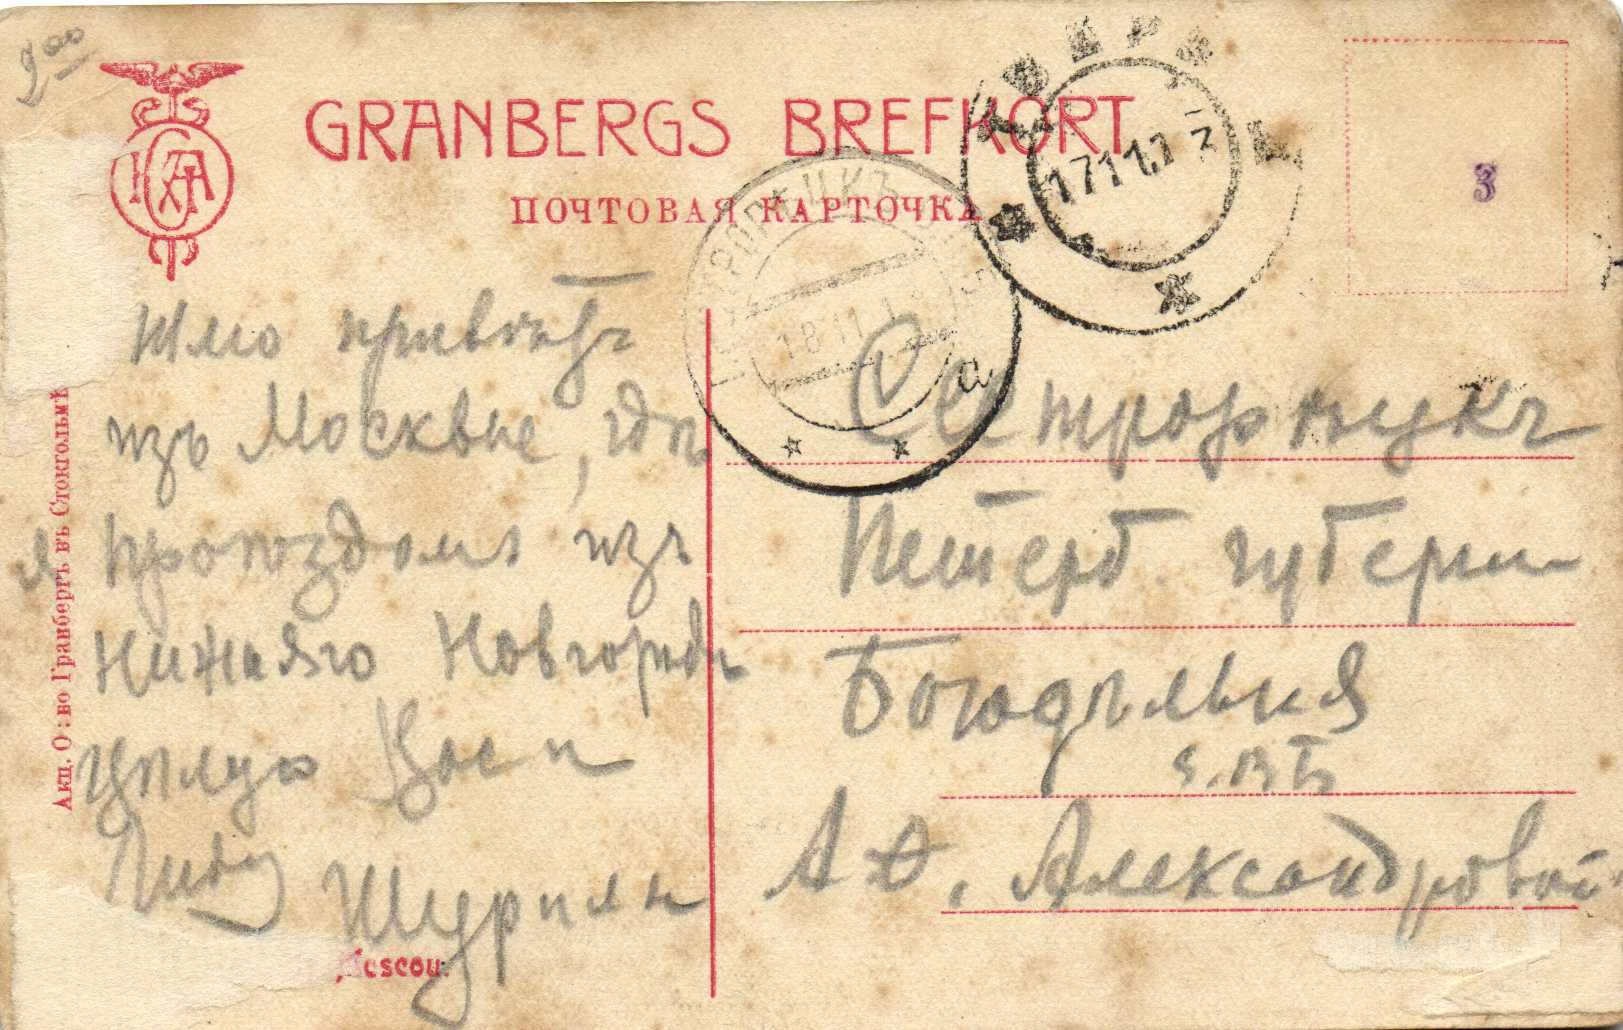 2 00
GRANBERGS BREFKORT
ПОЧТОВАЯ КАРТОЧКА
3
17 11 1
18 11 1
а
Шлю привѣтъ
изъ Москвы, гдѣ
я проѣздомъ изъ
Нижняго Новгорода
цѣлую Васъ и
Лиду
Шурила
Сестрорѣцкъ
Петерб. губерн
Богадѣльня
А. Ф. Александровой
Акц. О:во Гранбергъ въ Стокгольмѣ
Moscou.